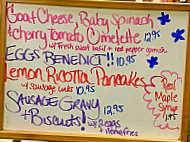 Goat Cheese, Baby Spinach
& Cherry Tomato Omelette 12.95
w/ fresh sweet basil + red pepper garnish
EGGS BENEDICT!! 10.95
Lemon Ricotta Pancakes
w/ sausage links 10.95
SAUSAGE GRAVY 10.95
+ Biscuits! w/ 2 eggs
+ homefries
Real
Maple
Syrup
1.95